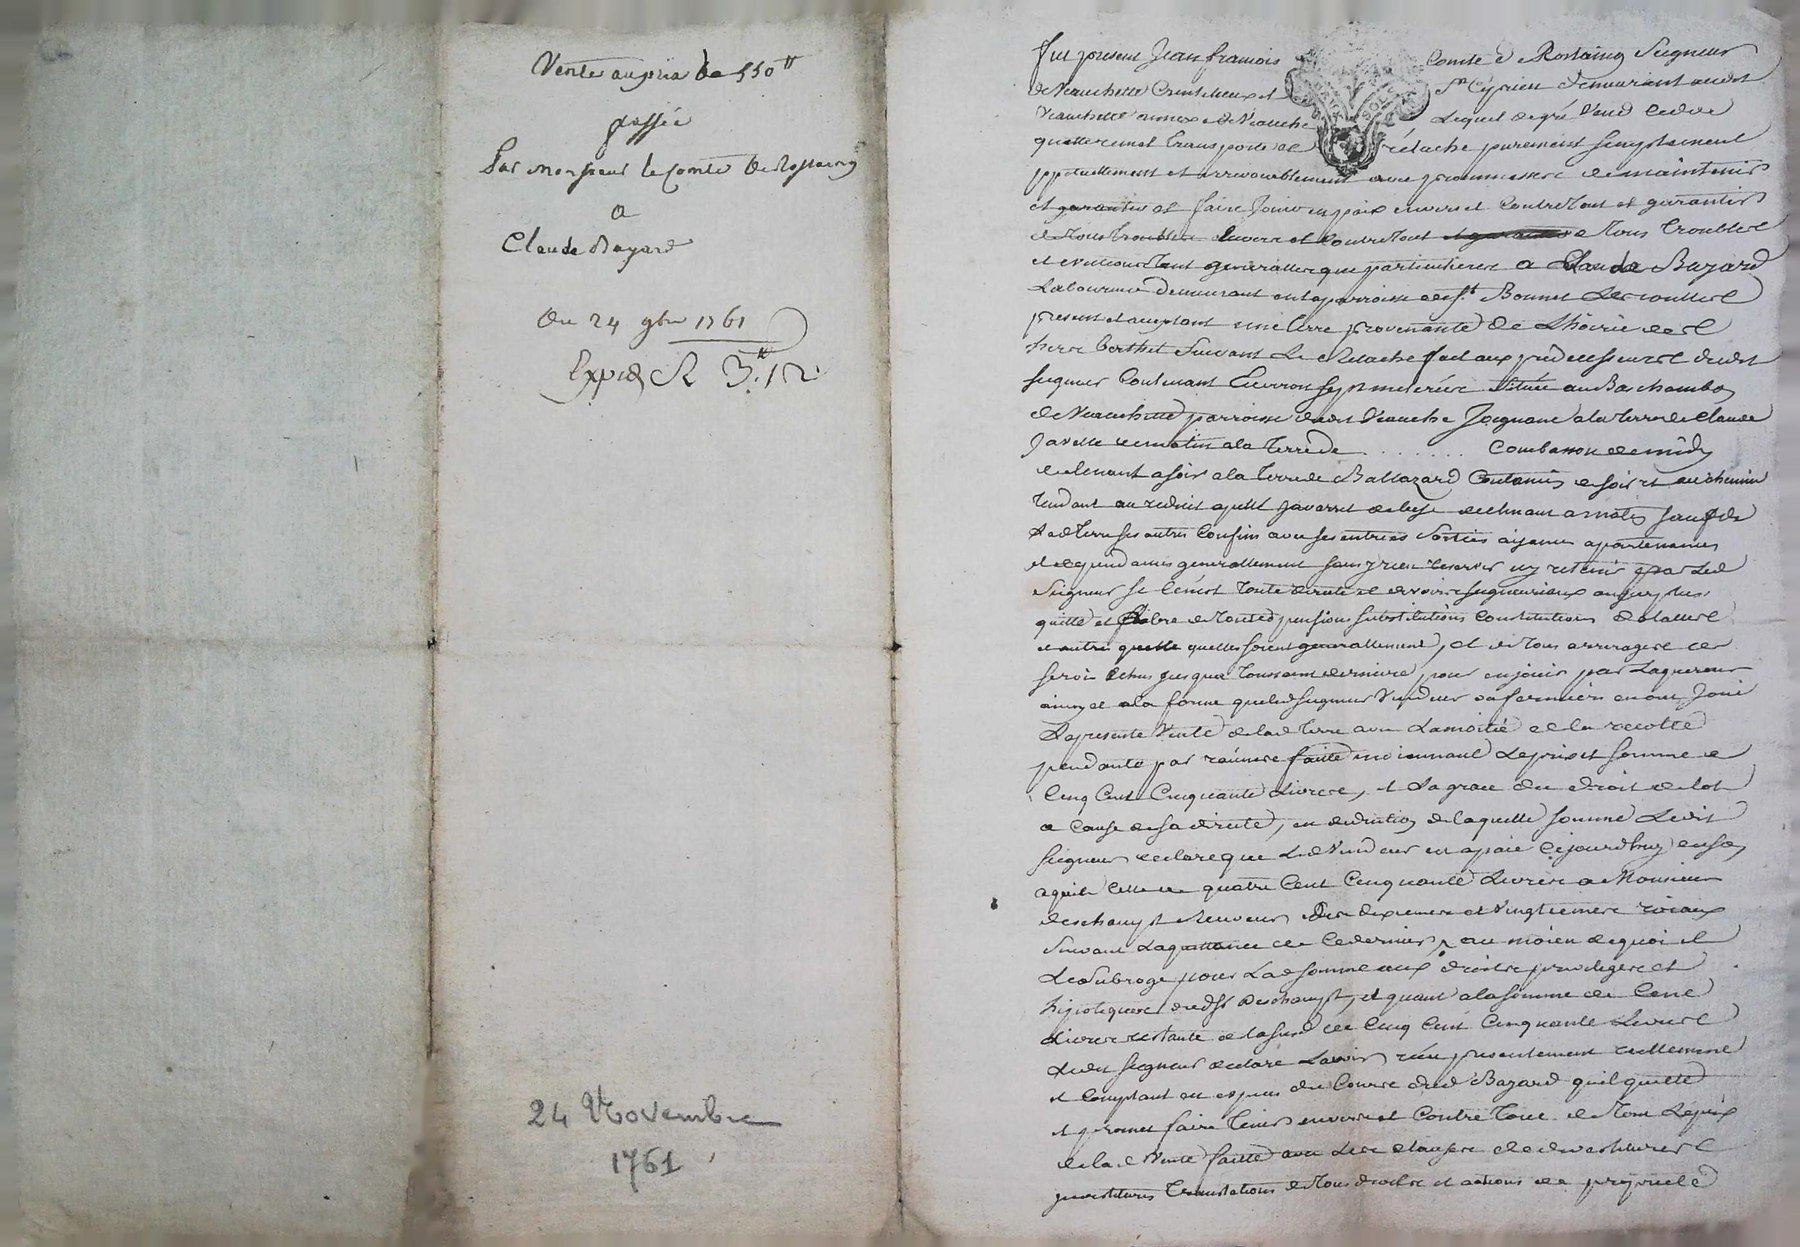 Vente au prix de 550 ₶
passée
Par Monsieur le Comte de Rostaing
a
Claude Bayard
Du 24 9bre 1761
Expié R 3₶.12.
24 Novembre
1761
fut present Jean francois Comte de Rostaing Seigneur
de Veauchette St Cyprien demeurant audt
Veauchette annexe de Veauche Lequel de gré vend cede
quitte remet transporte et relache purement simplement
ppetuellement et irrevocablement avec promesse de maintenir
et garantir et faire Jouir en paix envers et contre tout et garantir
de tous troubles envers et contre tout de tous troubles
et evictions tant generalles que particulieres a Claude Bayard
Laboureur demeurant en la parroisse de St Bonnet Les oulles
present et acceptant une terre provenante de L'hoirie de
Berthet Suivant Le Relache fait aux predecesseurs dudit
seigneur Contenant Environ sept meterées Située au Bas chambon
de Veauchette parroisse dudt Veauche Joignant a la terre de Claude
Javelle de matin a la terre de ....... Combasson de midy
declinant a soir a la terre de Baltazard de soir et au chemin
tendant au de bize declinant a matin sauf de
Lade terre ses autres Confins avec ses entrées Sorties aizances apartenances
et dependances generallement sans y rien reserver ny retenir par Led
Seigneur
quitte et de toutes pensions substitutions constitutions
et autres quelles soient generallement, et de tous arrerages de
Jusqua toussaint derniere, pour en jouir par Laquereur
ainsy et a la forme que led seigneur Vendeur ou fermiers en ont Joui
La presente Vente de lade terre avec La moitié de la recolte
pendante par racines faitte moiennant Le prix et somme de
Cinq Cent Cinquante Livres, et La grace du droit de lods
a cause de sa directe, en deduction de laquelle somme Ledit
seigneur declare que en a paié Cejourdhuy en son
aquit celle de quatre Cent Cinquante Livres a Monsieur
deschampt Receveur des dixiemes et vingtiemes roiaux
Suivant La quittance de Ce dernier, au moien de quoi il
Le Subroge pour Lad somme aux droits privileges et
hipoteques dudt Sr deschampt, et quant a la somme de Cent
Livres restante de la sud de Cinq Cent Cinquante Livres
Ledit seigneur declare Lavoir reçu presentement reellement
et Comptant en especes de Cours dud Bayard quil quitte
et promet faire tenir envers et Contre tous et tout Le prix
de la d Vente faitte avec Les clauses de devestitures
investitures translations de tous droits et actions de proprieté